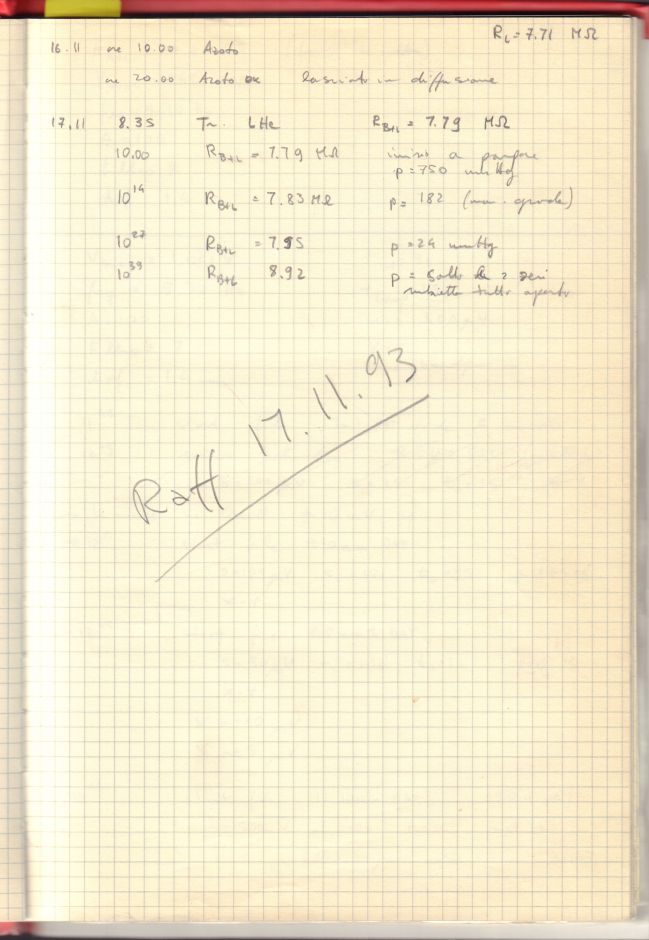 R_L = 7.71 MΩ
16.11 ore 10.00 Azoto
ore 20.00 Azoto ok lasciato in diffusione
17.11 8.35 Tr. LHe R_B+L = 7.79 MΩ
10.00 R_B+L = 7.79 MΩ inizio a pompare
p = 750 mmHg
10^14 R_B+L = 7.83 MΩ p = 182 (man. grande)
10^27 R_B+L = 7.95 p = 24 mmHg
10^39 R_B+L 8.92 p = sotto
tutto aperto
Raff 17.11.93